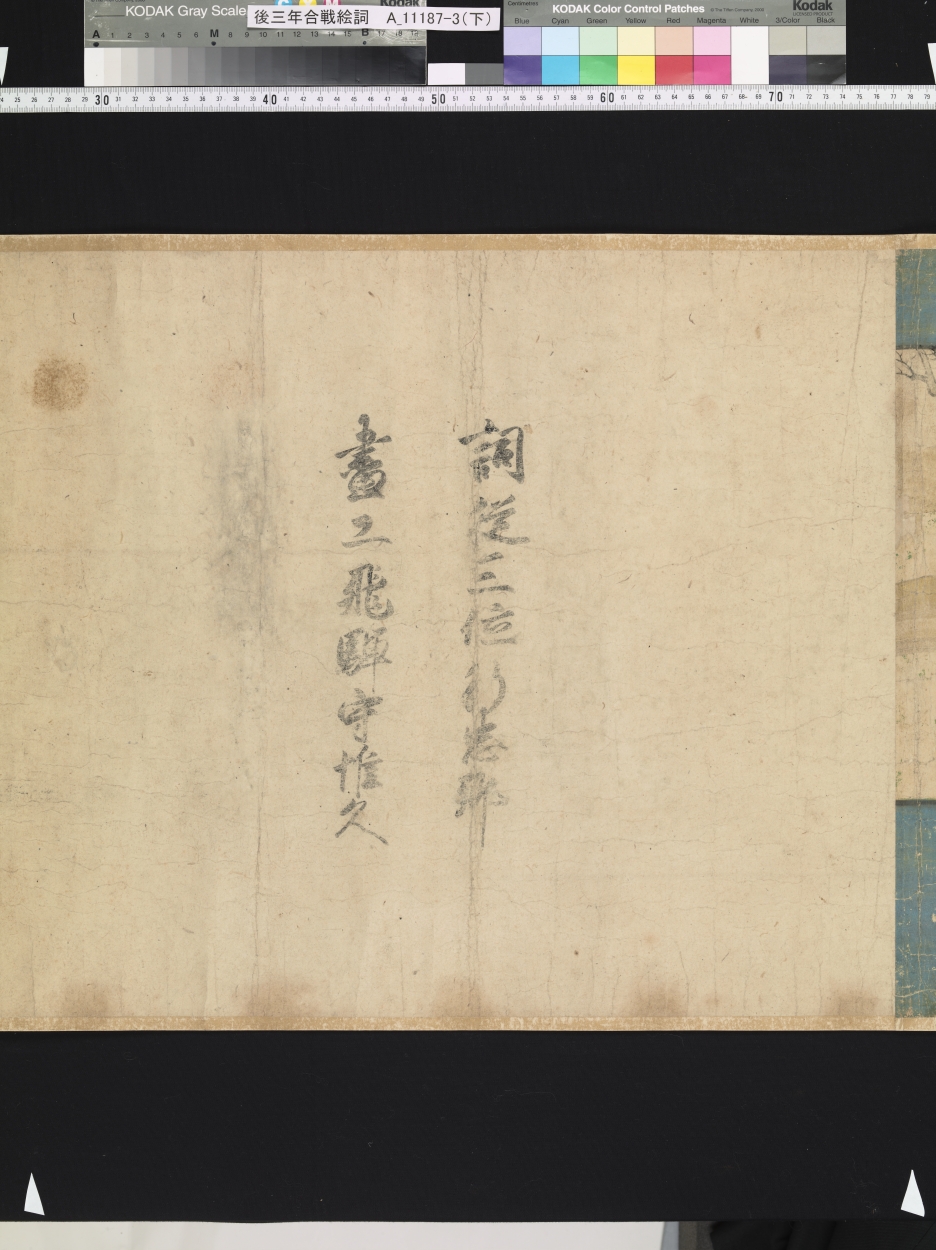 KODAK Gray Scale
Kodak
C Y M
A 1 2 3 4 5 6 M 8 9 10 11 12 13 14 15 B 17 18 19
後三年合戦絵詞 A_11187-3(下)
KODAK Color Control Patches
Kodak
LICENSED PRODUCT
Centimetres
© The Tiffen Company, 2000
Blue Cyan Green Yellow Red Magenta White 3/Color Black
24 25 26 27 28 29 30 31 32 33 34 35 36 37 38 39 40 41 42 43 44 45 46 47 48 49 50 51 52 53 54 55 56 57 58 59 60 61 62 63 64 65 66 67 68 69 70 71 72 73 74 75 76 77 78 79
詞従三位行忠卿
畫工飛驒守惟久